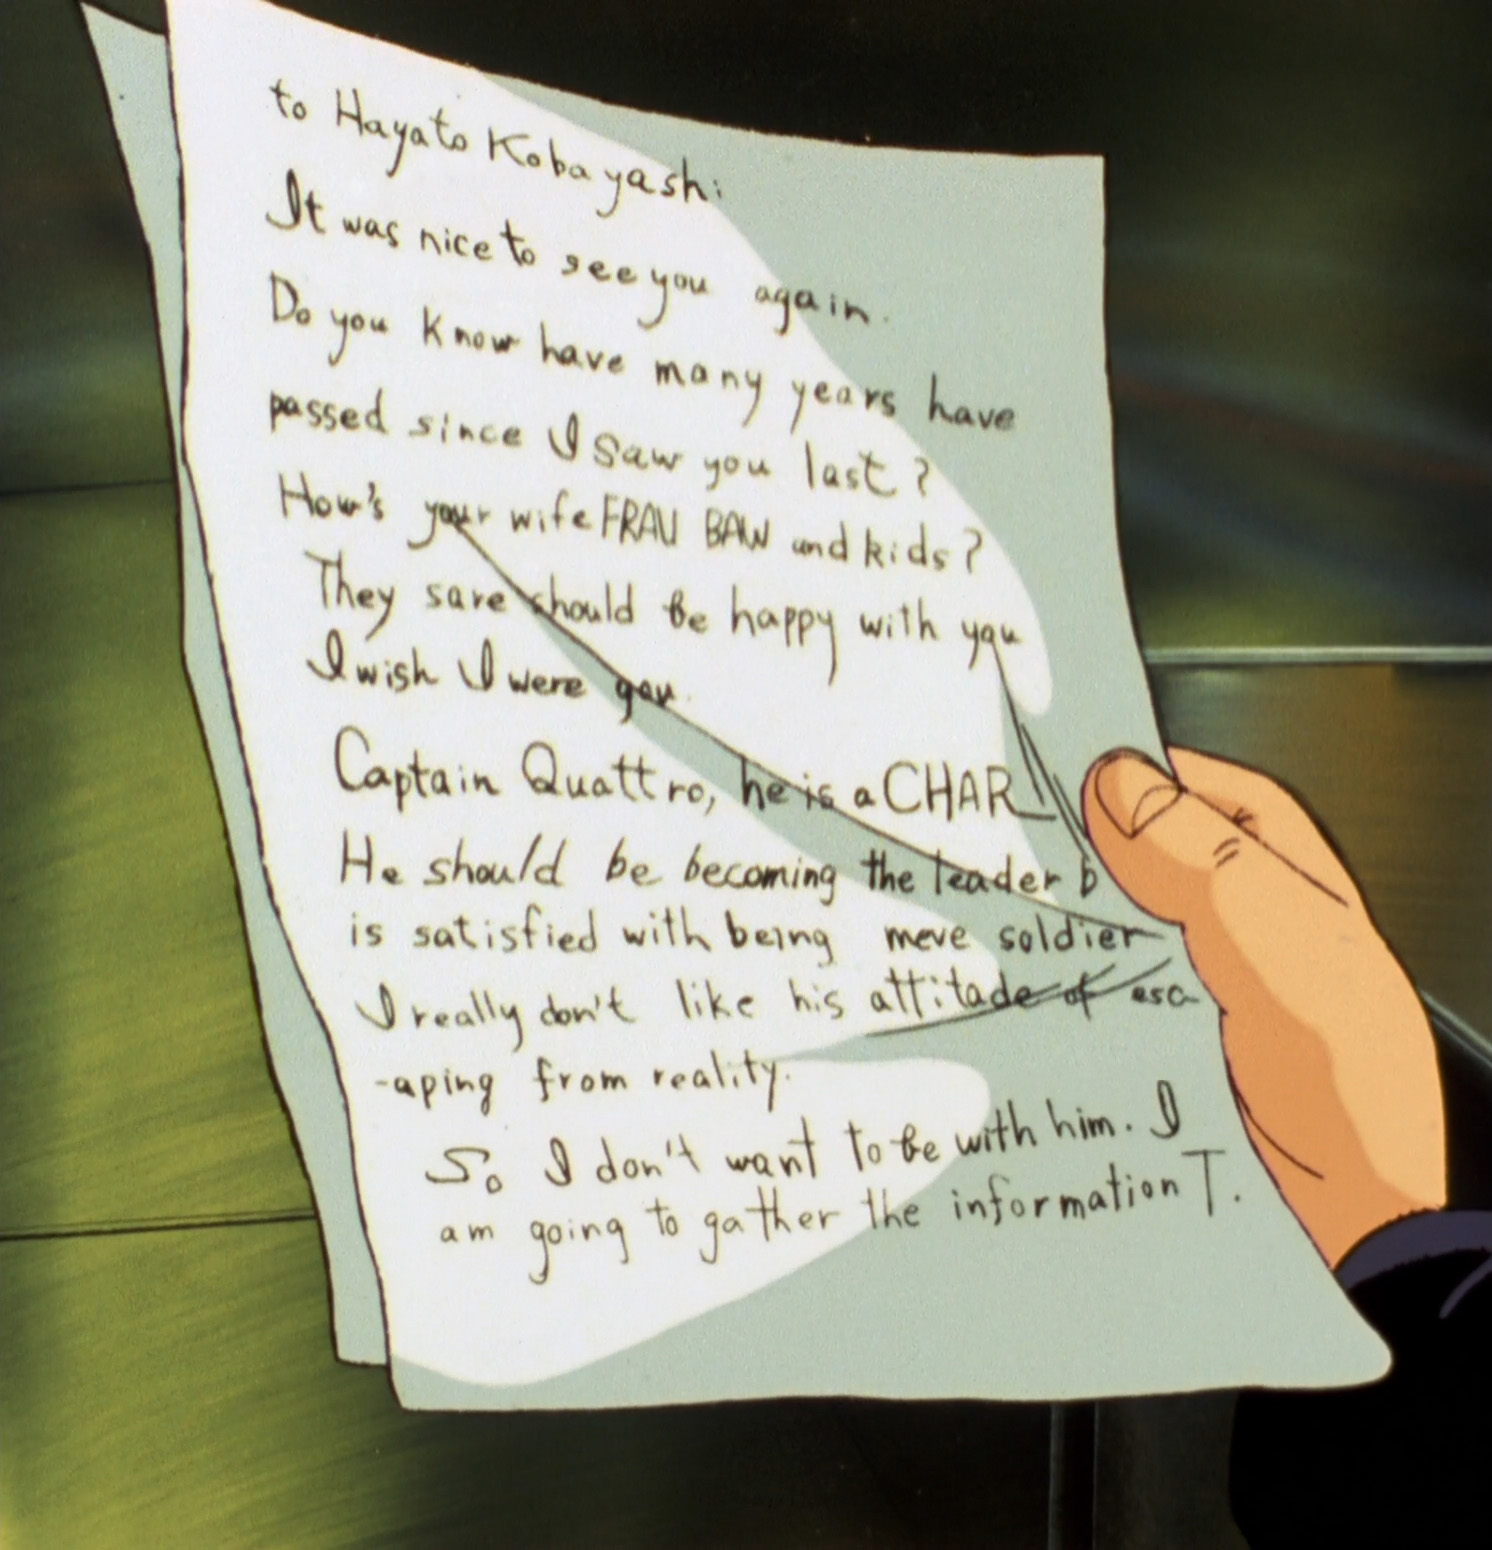 to Hayato Kobayashi
It was nice to see you again.
Do you know have many years have
passed since I saw you last?
How's your wife FRAU BAW and kids?
They sare should be happy with you
I wish I were you.
Captain Quattro, he is a CHAR!
He should be becoming the leader b
is satisfied with being meve soldier
I really don't like his attitade of esc
-aping from reality.
So I don't want to be with him. I
am going to gather the information T.